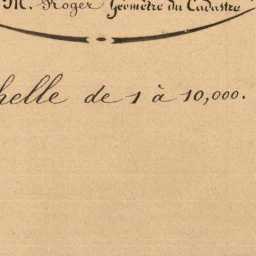 M. Roger Géomètre du Cadastre
helle de 1 à 10,000.